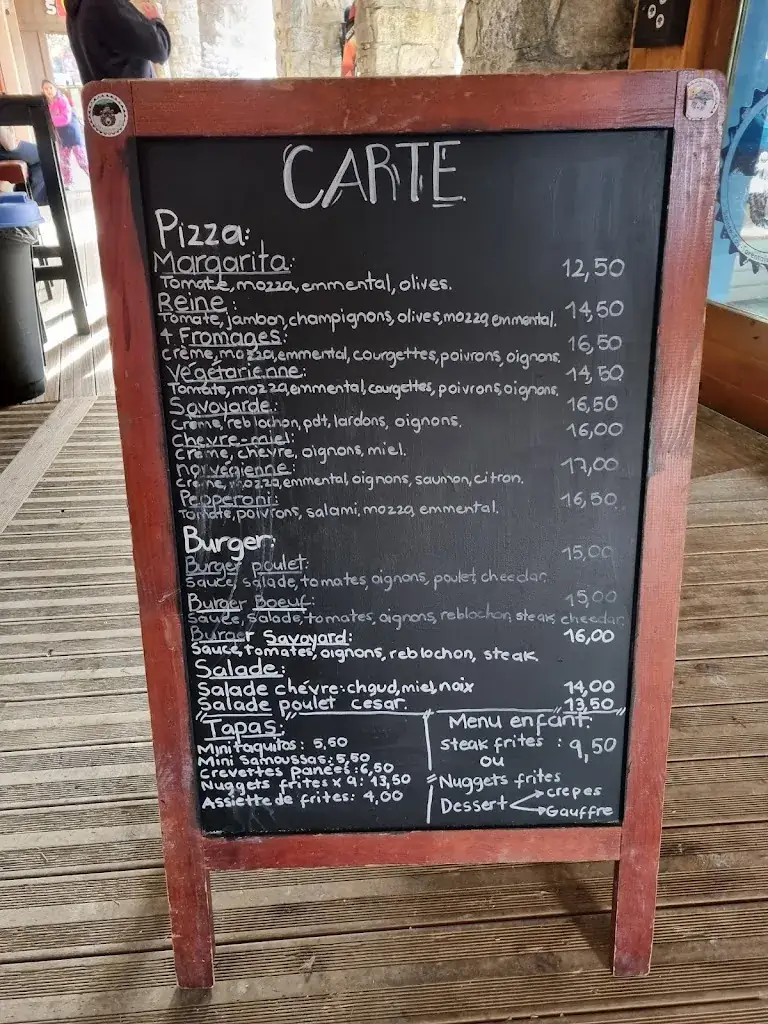 CARTE
Pizza:
Margarita: 12,50
Tomate, mozza, emmental, olives.
Reine : 14,50
Tomate, jambon, champignons, olives, mozza, emmental.
4 Fromages: 16,50
crème, mozza, emmental, courgettes, poivrons, oignons.
Végétarienne: 14,50
Tomate, mozza, emmental, courgettes, poivrons, oignons.
Savoyarde: 16,50
crème, reblochon, pdt, lardons, oignons.
chèvre-miel: 16,00
crème, chèvre, oignons, miel.
norvégienne: 17,00
crème, mozza, emmental, oignons, saumon, citron.
Pepperoni: 16,50
Tomate, poivrons, salami, mozza, emmental.
Burger:
Burger poulet: 15,00
sauce, salade, tomates, oignons, poulet, cheedar.
Burger Boeuf: 15,00
sauce, salade, tomates, oignons, reblochon, steak, cheedar.
Burger Savoyard: 16,00
Sauce, tomates, oignons, reblochon, steak.
Salade:
Salade chévre: chaud, miel, noix 14,00
Salade poulet cesar. 13,50
Tapas:
Mini taquitos: 5,50
Mini samoussas: 5,50
crevettes panées: 6,50
Nuggets frites x 9: 13,50
Assiette de frites: 4,00
Menu enfant:
steak frites : 9,50
ou
Nuggets frites
Dessert crepes
Gauffre